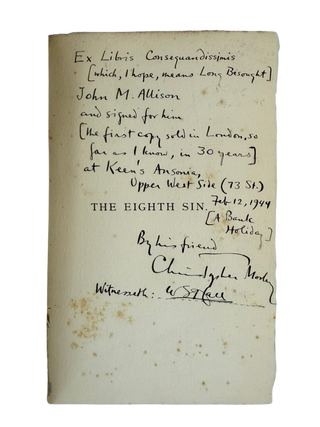 Ex Libris Consequandissimis
[which, I hope, means Long Besought]
John M. Allison
and signed for him
[the first copy sold in London, so
far as I know, in 30 years]
at Keen's Ansonia,
Upper West Side (73 St.)
Feb 12, 1944
THE EIGHTH SIN.
[A Bank
Holiday]
By his friend
Christopher Morley
Witnesseth: